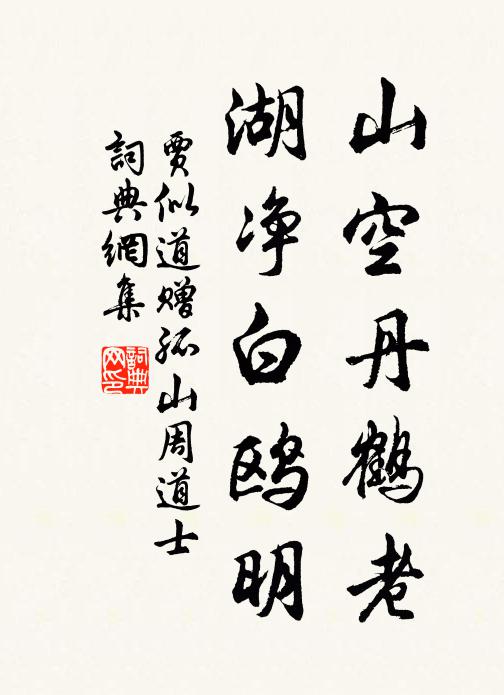 山空丹鶴老
湖净白鸥明
賈似道贈孤山周道士
詞典網集
詞典网印